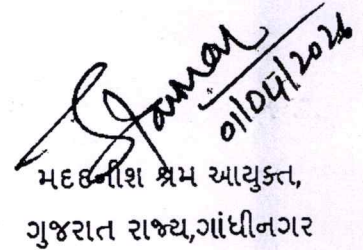 01/04/2026
મદદનીશ શ્રમ આયુક્ત,
ગુજરાત રાજ્ય,ગાંધીનગર